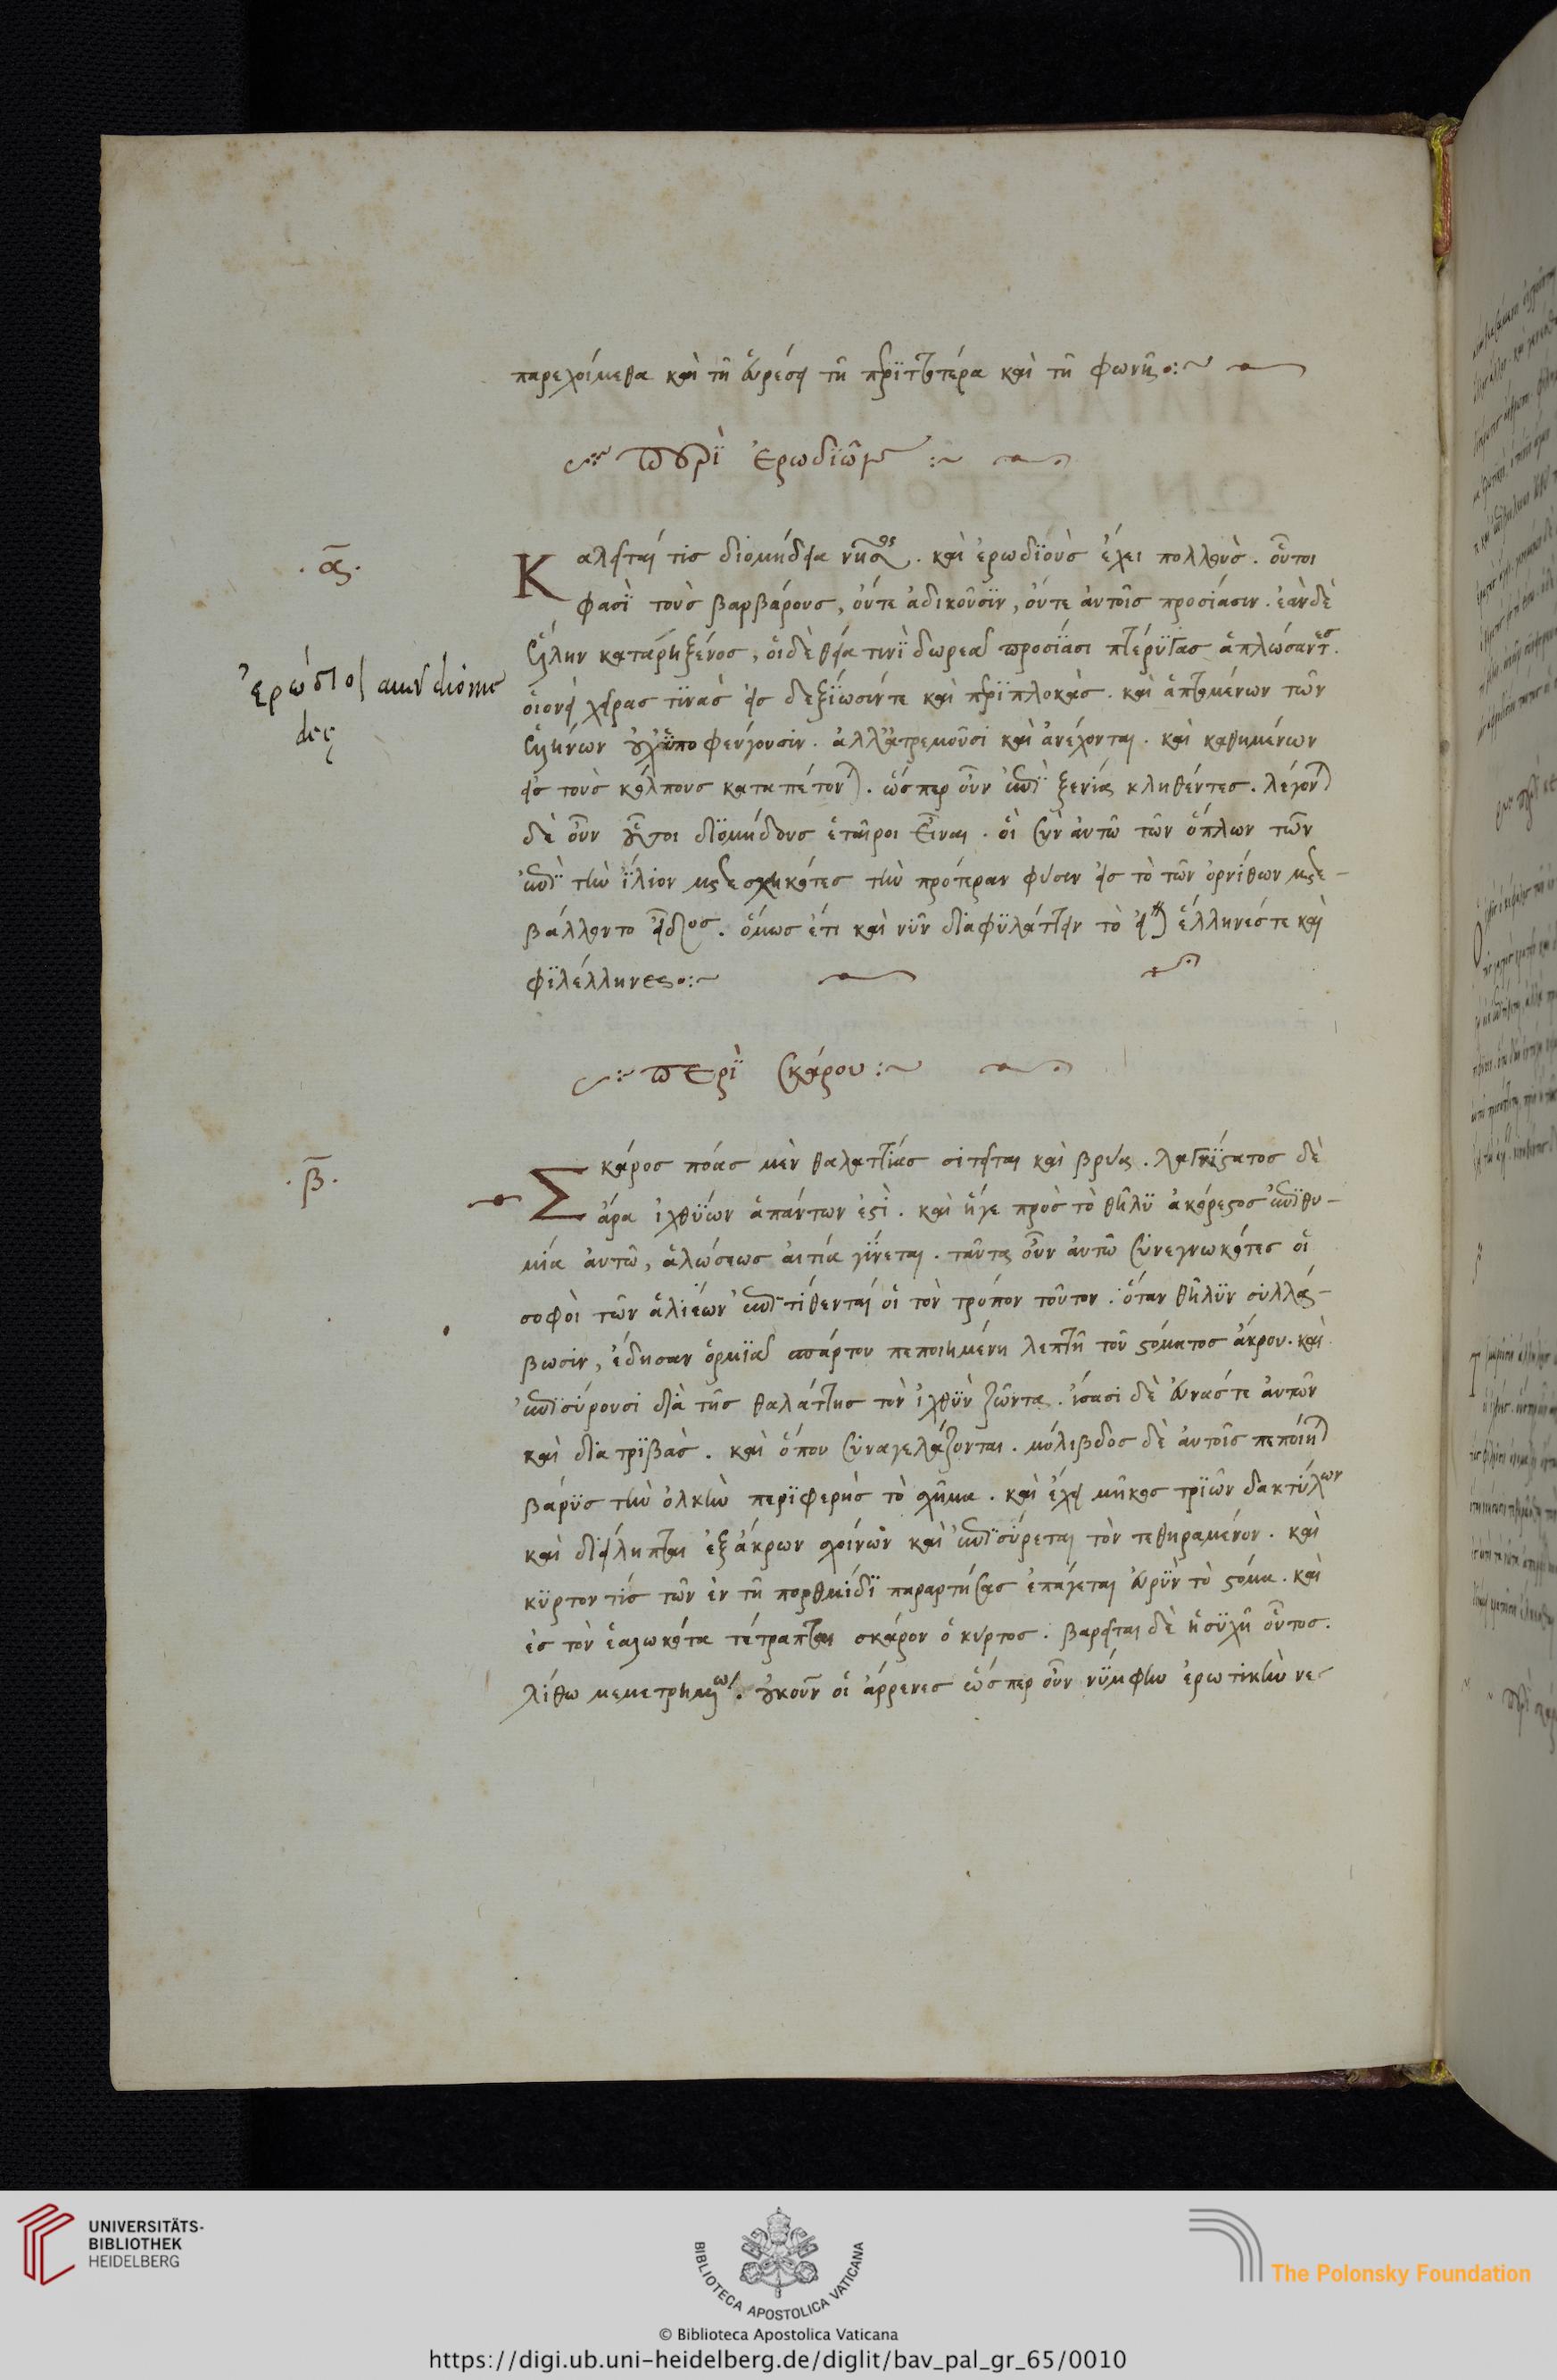 παρεχοίμεθα καὶ τῆ εὑρέσει τῆ περϊττοτέρα καὶ τῆ φωνῆς:~
περὶ ἐρωδϊῶν :~
.α.
Καλεῖταί τις διομήδεια νῆσος. καὶ ἐρωδϊοὺς ἔχει πολλούς. οὗτοι
φασὶ τοὺς βαρβάρους, οὔτε ἀδικοῦσϊν, οὔτε ἀυτοῖς προσίασιν. ἐὰν δὲ
ἕλλην κατάρη ξένος, ὁιδὲ θεία τινὶ δωρεᾶ προσίασι πτέρϋγας ἁπλώσαντες.
οἱονεὶ χεῖρας τϊνὰς εἰς δεξίωσίν τε καὶ περϊπλοκάς. καὶ ἁπτομένων τῶν
ἑλλήνων οὐχ ὑποφεύγουσιν. ἀλλ' ἀτρεμοῦσι καὶ ἀνέχονται. καὶ καθημένων
εἰς τοὺς κόλπους καταπέτονται. ὥσπερ οὖν ἐπὶ ξενία κληθέντες. λέγονται
δὲ οὖν οὗτοι διομήδους ἑταῖροι εἶναι. οἱ σὺν ἀυτῶ τῶν ὅπλων τῶν
ἐπὶ τὴν ἴλιον μετεσχηκότες τὴν πρότεραν φύσιν εἰς τὸ τῶν ὀρνίθων μετε-
βάλλοντο εἶδος. ὅμως ἔτι καὶ νῦν διαφϋλάττειν τὸ εἶναι ἕλληνές τε καὶ
φϊλέλληνες:~
Ἐρώδιοι
diome
des
περὶ σκάρου :~
.β.
Σκάρος πόας μὲν θαλαττίας σιτεῖται καὶ βρύα. λαγνίστατος δὲ
ἄρα ἰχθύων ἁπάντων ἐστὶ. καὶ ἥγε πρὸς τὸ θῆλϋ ἀκόρεστος ἐπϊθυ-
μία ἀυτῶ, ἁλώσεως ἀιτία γίνεται. ταῦτα οὖν ἀυτῶ συνεγνωκότες οἱ
σοφοὶ τῶν ἁλιέων ἐπιτίθενταί οἱ τὸν τρόπον τοῦτον. ὅταν θῆλϋν συλλά-
βωσιν, ἔδησαν ὁρμϊᾶ σπάρτου πεποιημένη λεπτῆ τοῦ στόματος ἄκρου. καὶ
ἐπϊσύρουσι διὰ τῆς θαλάττης τὸν ἰχθὺν ζῶντα. ἴσασι δὲ εὐνάς τε ἀυτῶν
καὶ διατρϊβάς. καὶ ὅπου συναγελάζονται. μόλιβδος δὲ ἀυτοῖς πεποίηται
βαρὺς τὴν ὁλκὴν περϊφερὴς τὸ σχῆμα. καὶ ἔχει μῆκος τρϊῶν δακτύλων
καὶ διείληπται ἐξ ἄκρων σχοίνω καὶ ἐπϊσύρεται τὸν τεθηραμένον. καὶ
κύρτον τίς τῶν ἐν τῆ πορθμίδϊ παραρτήσας ἐπάγεται εὐρὺν τὸ στόμα. καὶ
ἐς τὸν ἑαλωκότα τέτραπται σκάρον ὁ κύρτος. βαρεῖται δὲ ἡσυχῆ οὗτος.
λίθω μεμετρημένω. οὐκοῦν οἱ ἄρρενες ὥσπερ οὖν νύμφην ἐρωτικὴν νε-
UNIVERSITÄTS-
BIBLIOTHEK
HEIDELBERG
BIBLIOTECA APOSTOLICA VATICANA
The Polonsky Foundation
© Biblioteca Apostolica Vaticana
https://digi.ub.uni-heidelberg.de/diglit/bav_pal_gr_65/0010